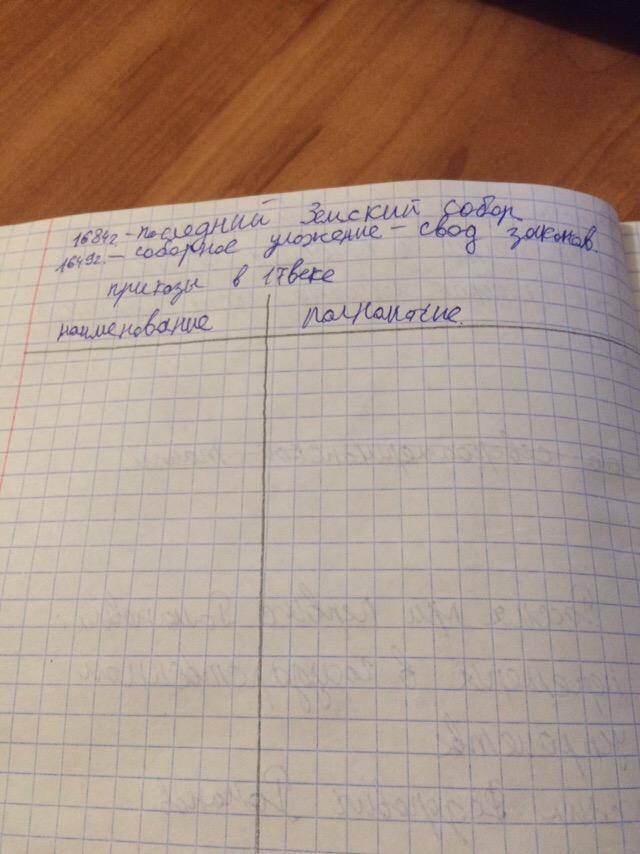 1684г - последний Земский собор
1649г. - соборное уложение - свод законов.
приказы в 17 веке
наименование полномочие.